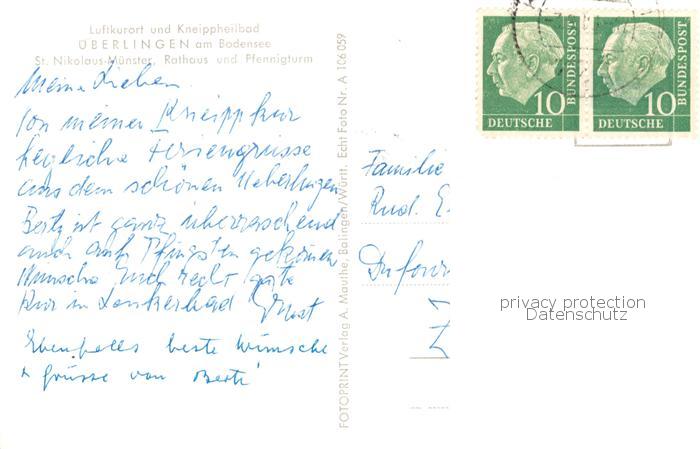 Luftkurort und Kneippheilbad
ÜBERLINGEN am Bodensee
St. Nikolaus-Münster, Rathaus und Pfennigturm
Meine Lieben
Von meiner Kneippkur
herzliche Feriengrüsse
aus dem schönen Ueberlingen
Berty ist ganz überraschend
auch auf Pfingsten gekommen
Wünsche Euch recht gute
Kur in Leukerbad Ernst
Ebenfalls beste Wünsche
+ Grüsse von Berti
FOTOPRINT Verlag A. Mauthe, Balingen/Württ. Echt Foto Nr. A 106 059
Familie
Rud. E.
Dufour
10
DEUTSCHE
BUNDESPOST
10
DEUTSCHE
BUNDESPOST
privacy protection
Datenschutz